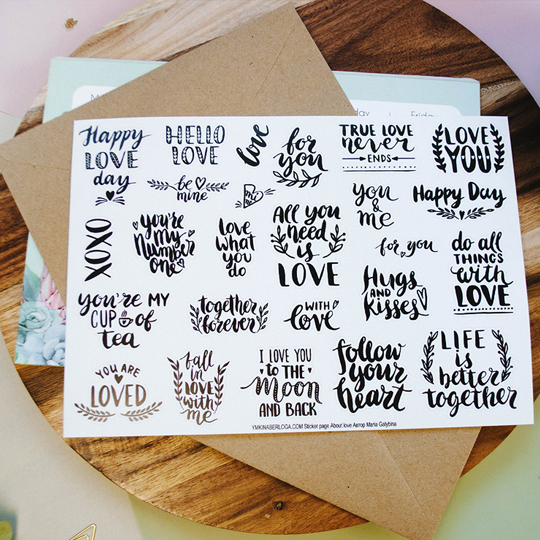 Happy
LOVE
day
HELLO
LOVE
love
for
you
TRUE LOVE
never
ENDS
LOVE
YOU
be
mine
you
& me
Happy Day
XOXO
you're
my
Number
one
love
what
you
do
All you
need
is
LOVE
for you
do all
THINGS
with
LOVE
Hugs
AND
Kisses
you're MY
CUP of
tea
together
forever
WITH
love
YOU ARE
LOVED
fall
in
LOVE
with
me
I LOVE YOU
to THE
Moon
AND BACK
follow
your
heart
LIFE
is
better
together
YMKINABERLOGA.COM Sticker page About love Автор Maria Golybina
day
Friday